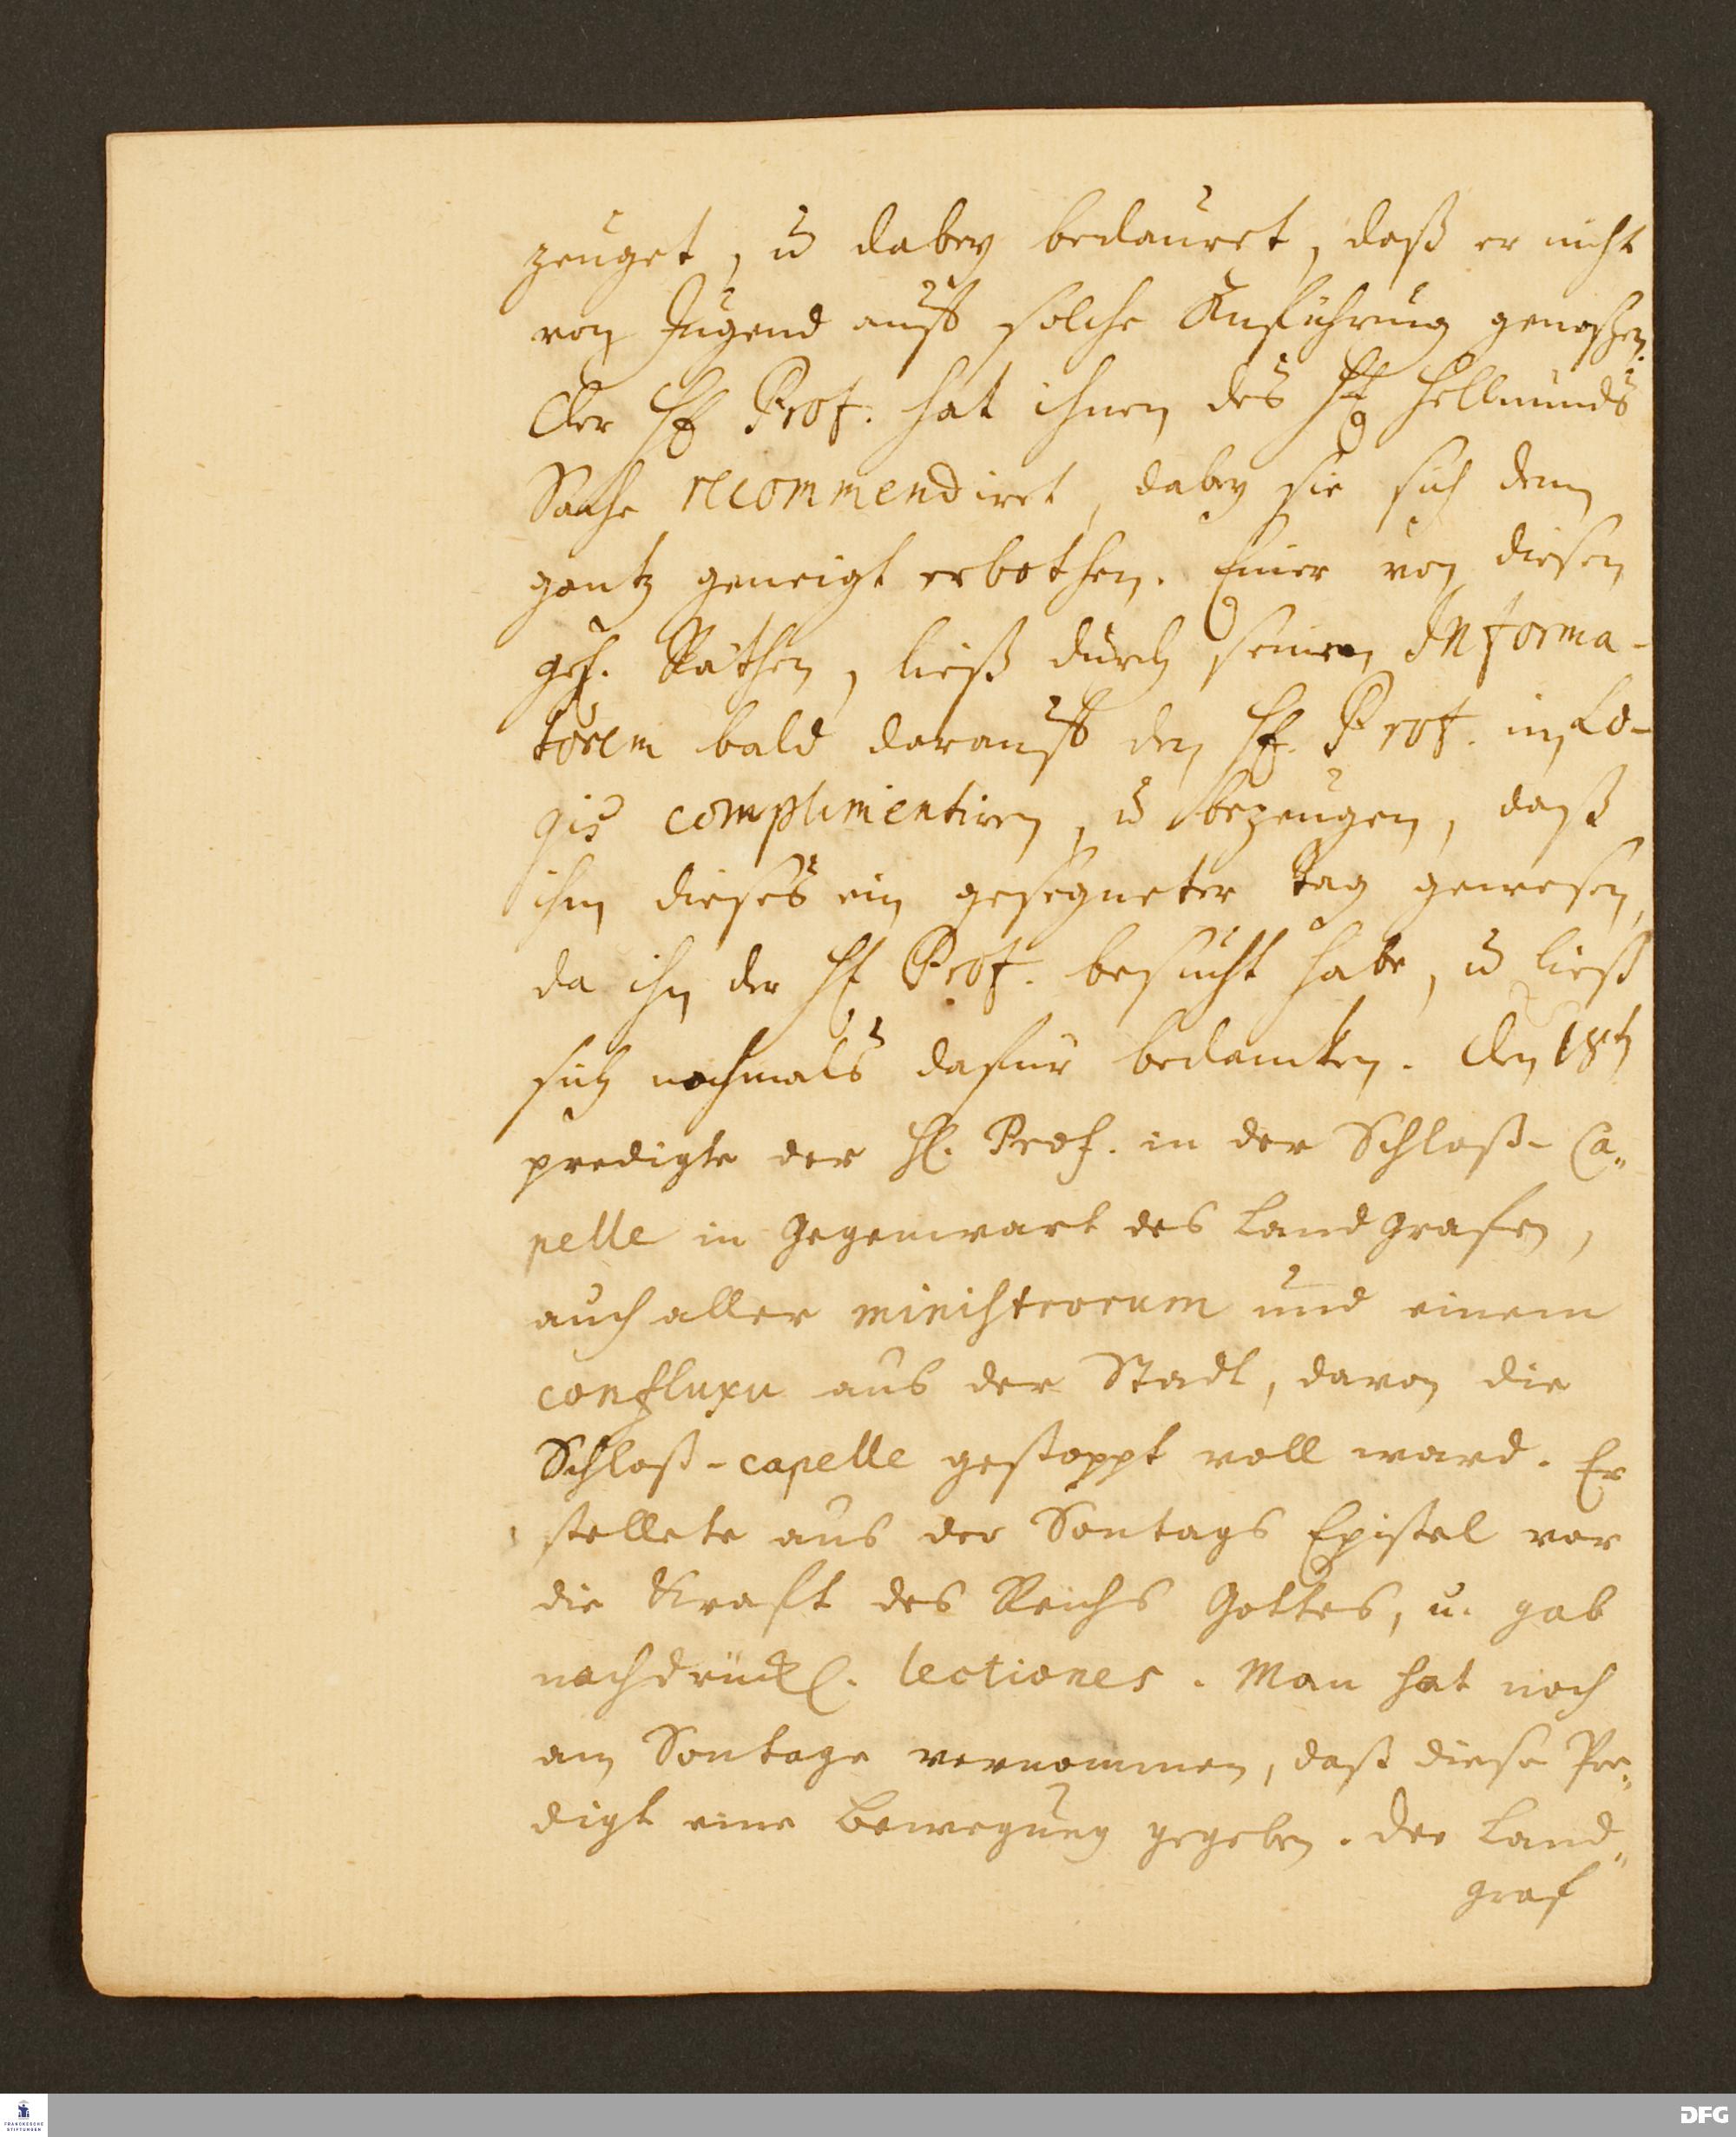 zeuget, u dabey bedauret, daß er nicht
von Jugend auff solche Anführung genoßen.
Der H Prof. hat ihnen des H Hellmunds
Sache recommendiret, dabey sie sich denn
gantz geneigt erbothen. Einer von diesen
geh. Räthen, ließ durch seinen Informa-
torem bald darauff den H. Prof. im Lo-
gis complimentiren, u bezeugen, daß
ihm dieses ein gesegneter tag gewesen,
da ihn der H Prof. besucht habe, u ließ
sich nochmals dafür bedancken. Den 18t
predigte der H. Prof. in der Schloß- Ca„
pelle in Gegenwart des Landgrafen,
auch aller ministrorum und einem
confluxu aus der Stadt, davon die
Schloß-capelle gestoppt voll ward. Er
stellete aus der Sontags Epistel vor
die Krafft des Reichs Gottes, u. gab
nachdrückl. lectiones. Man hat noch
am Sontage vernommen, daß diese Pre„
digt eine Bewegung gegeben. Der Land„
graf
FRANCKESCHE
STIFTUNGEN
DFG